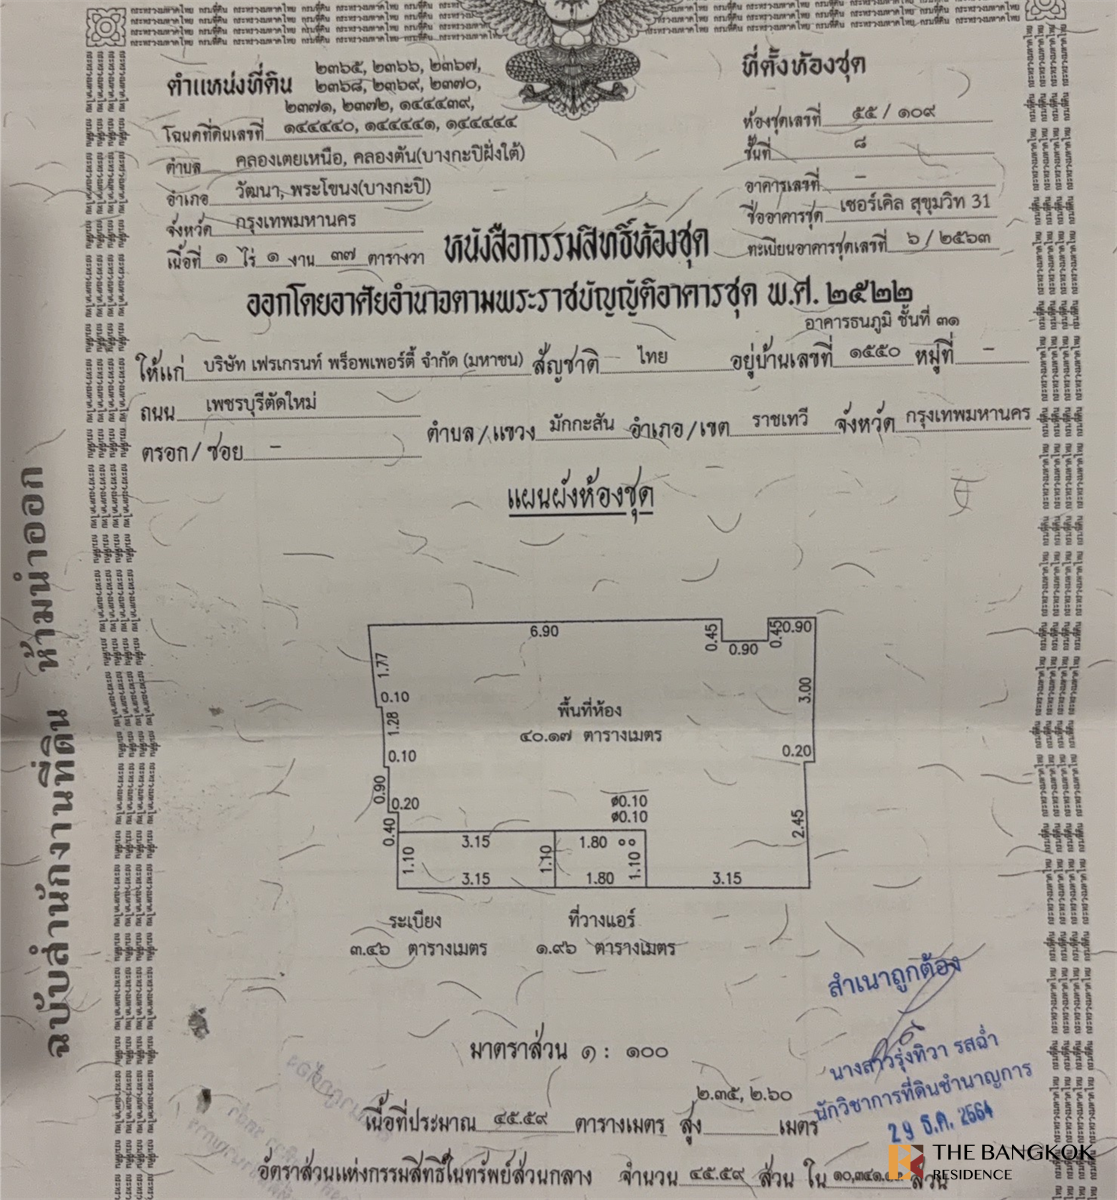 ตำแหน่งที่ดิน
๒๓๖๕, ๒๓๖๖, ๒๓๖๗,
๒๓๖๘, ๒๓๖๙, ๒๓๗๐,
๒๓๗๑, ๒๓๗๒, ๑๔๔๔๓๙,
โฉนดที่ดินเลขที่ ๑๔๔๔๔๐, ๑๔๔๔๔๑, ๑๔๔๔๔๔
ตำบล คลองเตยเหนือ, คลองตัน(บางกะปิฝั่งใต้)
อำเภอ วัฒนา, พระโขนง(บางกะปิ)
จังหวัด กรุงเทพมหานคร
เนื้อที่ ๑ ไร่ ๑ งาน ๓๗ ตารางวา
ที่ตั้งห้องชุด
ห้องชุดเลขที่ ๕๕ / ๑๐๙
ชั้นที่ ๘
อาคารเลขที่ –
ชื่ออาคารชุด เซอร์เคิล สุขุมวิท 31
ทะเบียนอาคารชุดเลขที่ ๖ / ๒๕๖๓
หนังสือกรรมสิทธิ์ห้องชุด
ออกโดยอาศัยอำนาจตามพระราชบัญญัติอาคารชุด พ.ศ. ๒๕๒๒
อาคารธนภูมิ ชั้นที่ ๓๑
ให้แก่ บริษัท เฟรเกรนท์ พร็อพเพอร์ตี้ จำกัด (มหาชน) สัญชาติ ไทย อยู่บ้านเลขที่ ๑๕๕๐ หมู่ที่ –
ถนน เพชรบุรีตัดใหม่
ตำบล/แขวง มักกะสัน อำเภอ/เขต ราชเทวี จังหวัด กรุงเทพมหานคร
ตรอก/ซอย –
แผนผังห้องชุด
6.90
0.45
0.90
0.45
0.90
1.77
0.10
1.28
0.10
0.90
0.20
0.40
3.00
0.20
2.45
พื้นที่ห้อง
๔๐.๑๗ ตารางเมตร
ø0.10
ø0.10
3.15
1.80
1.10
1.10
1.10
3.15
1.80
3.15
ระเบียง
๓.๔๖ ตารางเมตร
ที่วางแอร์
๑.๙๖ ตารางเมตร
มาตราส่วน ๑ : ๑๐๐
๒.๓๕, ๒.๖๐
เนื้อที่ประมาณ ๔๕.๕๙ ตารางเมตร สูง เมตร
อัตราส่วนแห่งกรรมสิทธิ์ในทรัพย์ส่วนกลาง จำนวน ๔๕.๕๙ ส่วน ใน ส่วน
สำเนาถูกต้อง
นางสาวรุ่งทิวา รสฉ่ำ
นักวิชาการที่ดินชำนาญการ
29 ธ.ค. 2564
ฉบับสำนักงานที่ดิน ห้ามนำออก
THE BANGKOK
RESIDENCE